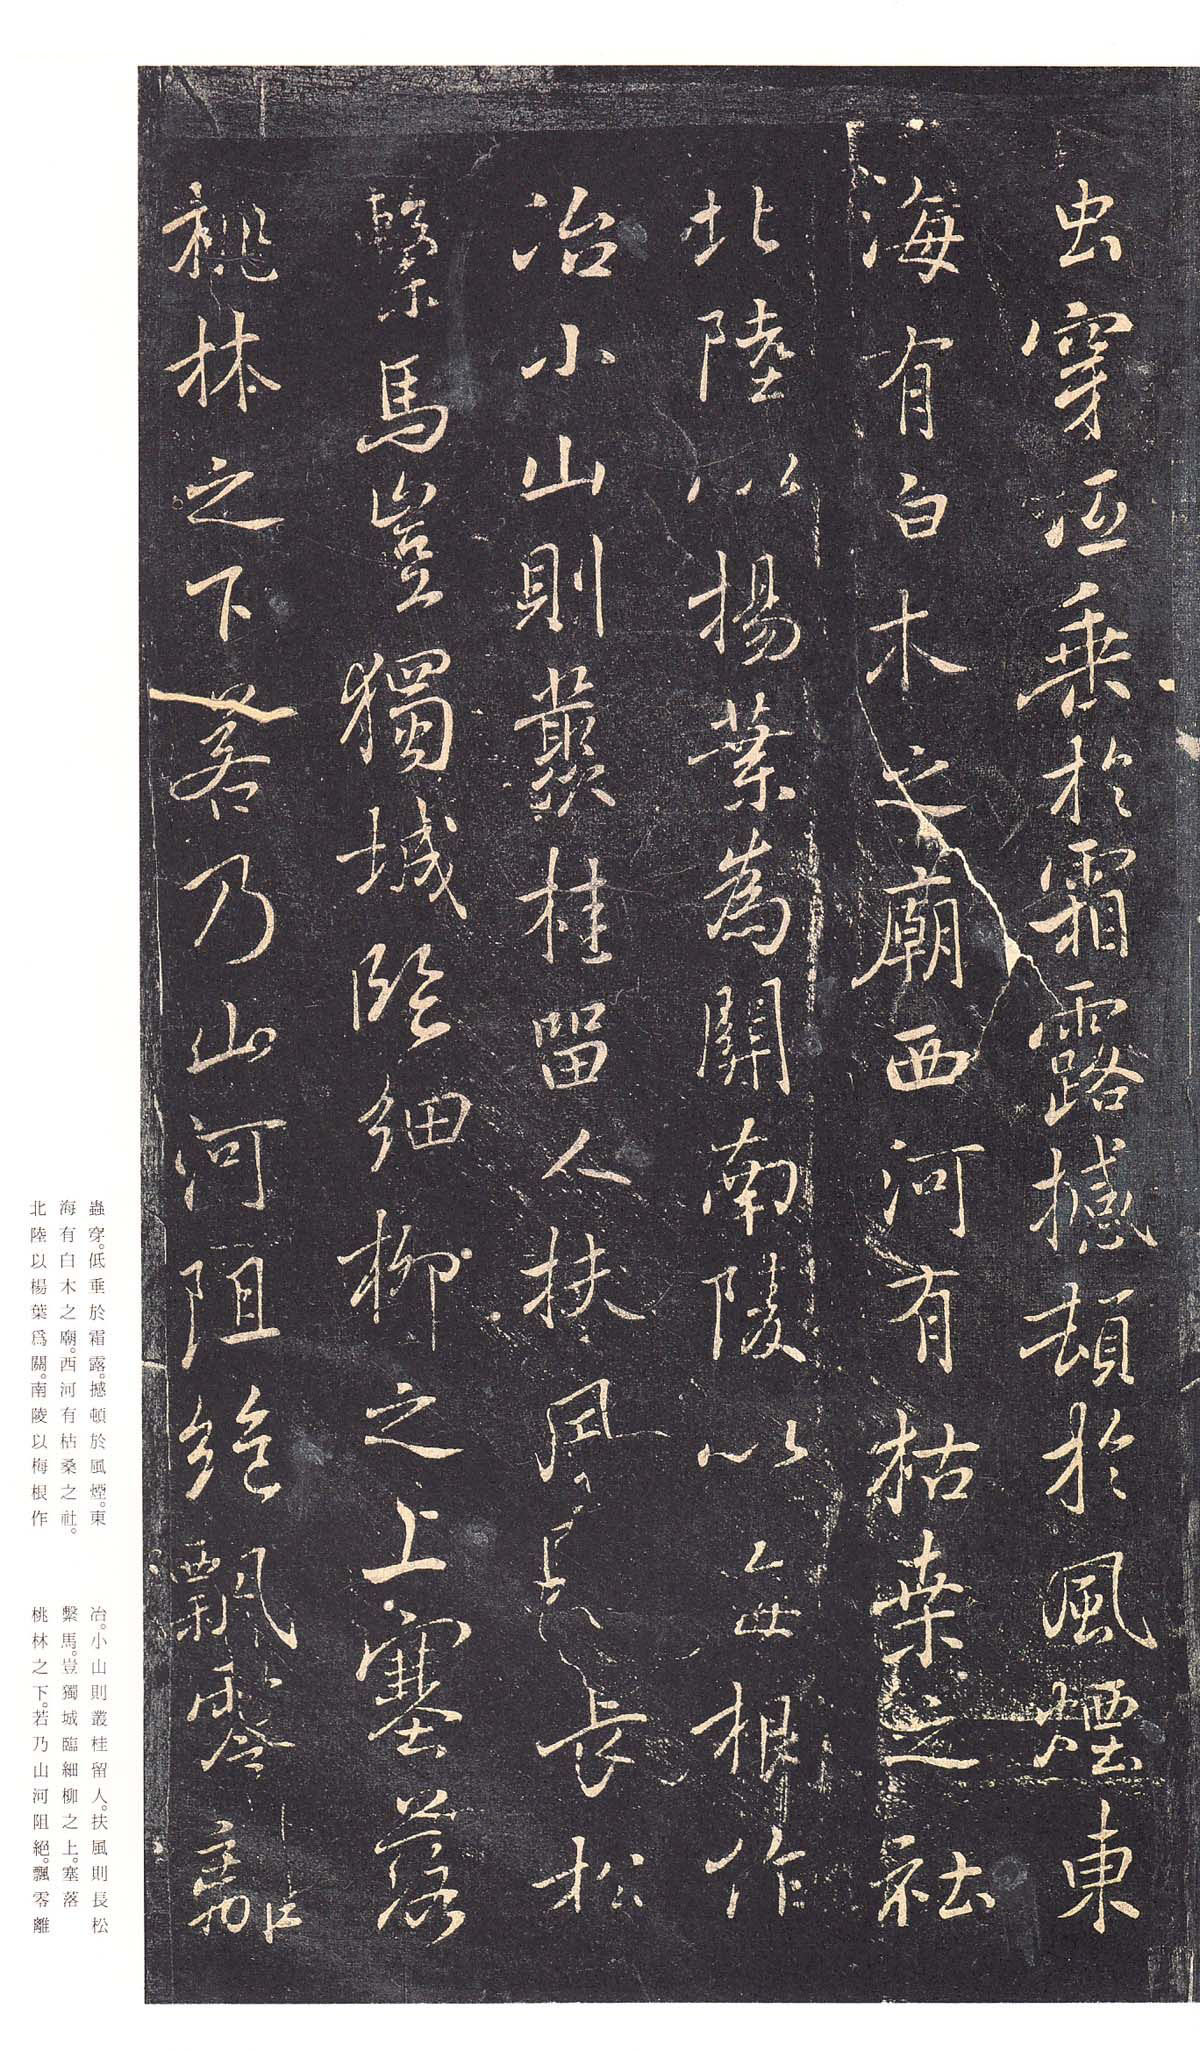 虫穿低垂於霜露撼頓於風煙東
海有白木之廟西河有枯桒之社
北陸以楊葉為關南陵以每根作
冶小山則叢桂留人扶風則長松
繫馬豈獨城臨細柳之上塞落
桃林之下若乃山河阻絕飄零離
蟲穿。低垂於霜露。撼頓於風煙。東
海有白木之廟。西河有枯桑之社。
北陸以楊葉爲關。南陵以梅根作
冶。小山則叢桂留人。扶風則長松
繫馬。豈獨城臨細柳之上。塞落
桃林之下。若乃山河阻絕。飄零離